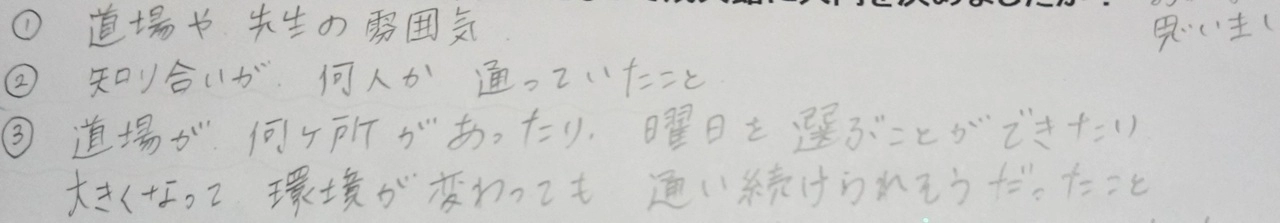 入門を決めましたか?
思いまし
① 道場や 先生の雰囲気
② 知り合いが 何人か 通っていたこと
③ 道場が 何ヶ所があったり、曜日を選ぶことができたり
大きくなって 環境が変わっても 通い続けられそうだったこと